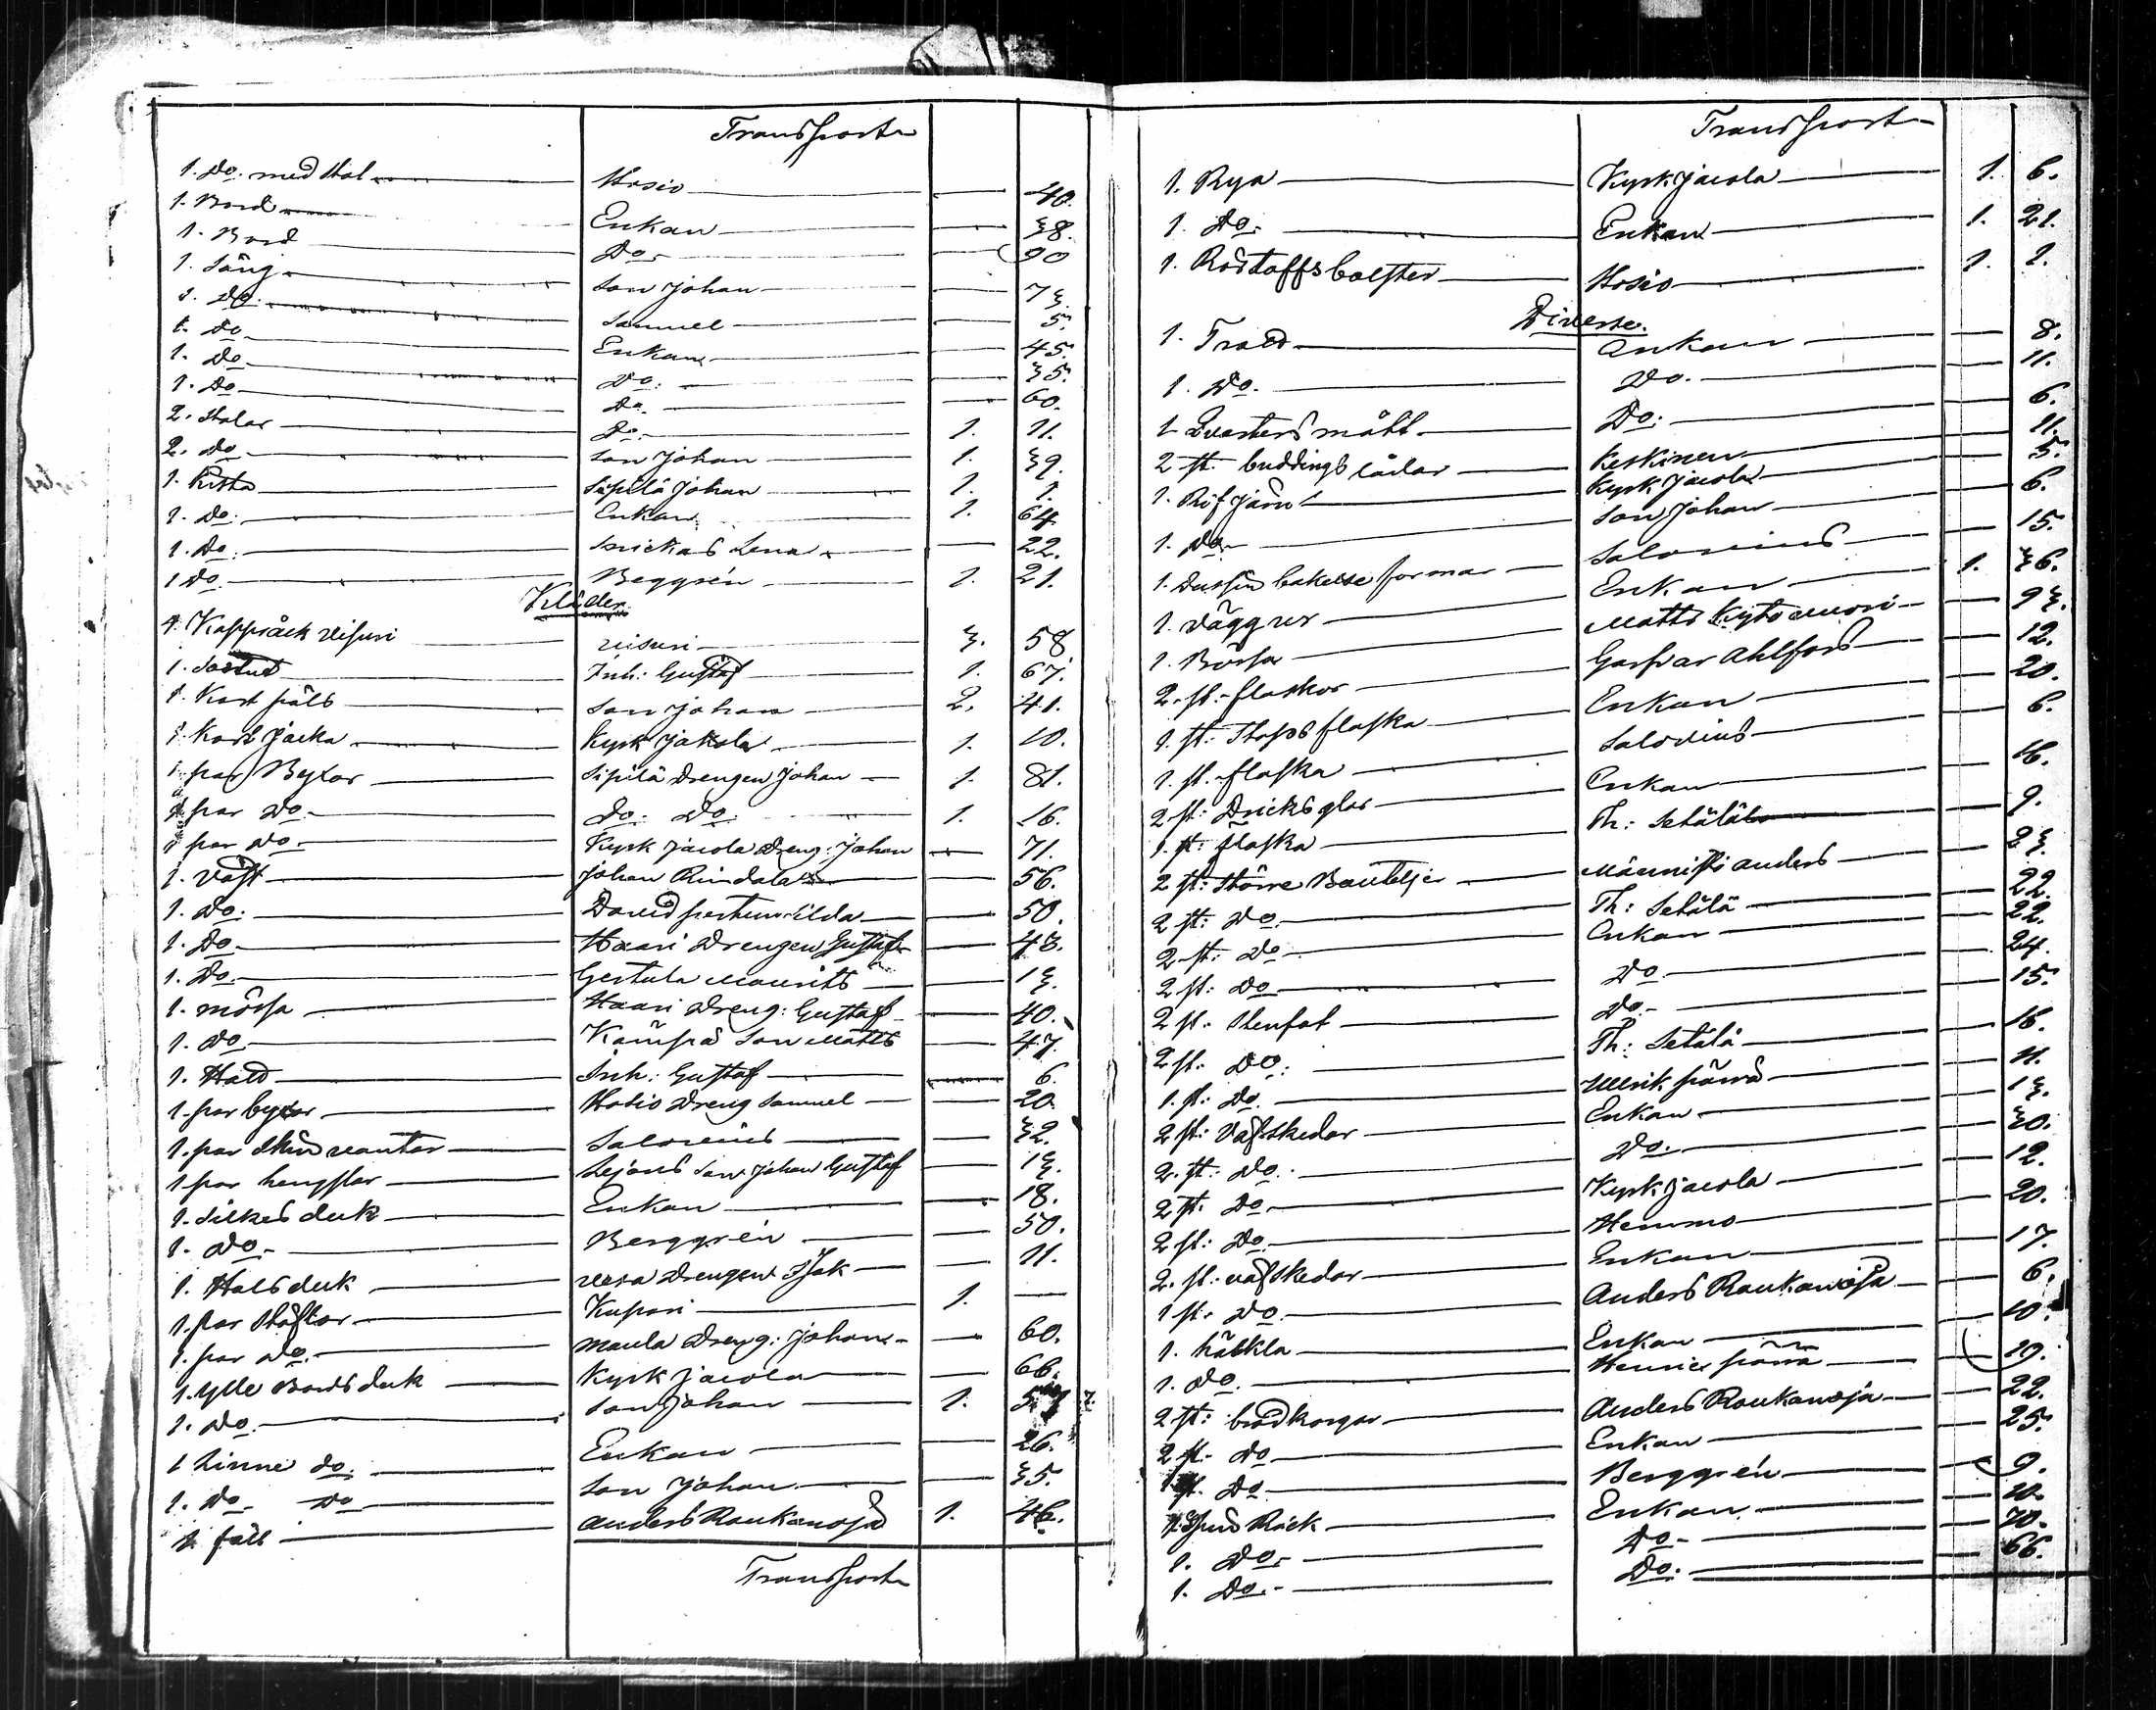 Transport
1. Do: med Stol Hosio — 40.
1. Bord Enkan — 38.
1. Bord Do — 90
1. Säng Son Johan — 73.
1. Do. Samuel — 5.
1. Do Enkan — 45.
1. Do Do: — 35.
1. Do Do. — 60.
2. Stolar Do. 1. 11.
2. Do Son Johan 1. 39.
1. Kista Sipilä Johan 1. 1.
1. Do: Enkan 1. 64
1. Do: Lena — 22.
1 Do. Beggrén 1. 21.
Kläder.
1. Kappråck visuri visuri 3. 58
1. Inh: Gustaf 1. 67.
1. Kort päls Son Johan 2. 41.
1. Kort Jacka Kyrk Jakola 1. 10.
1 par Byxor Sipilä Drengen Johan 1. 81.
1 par Do. Do: Do: 1. 16.
1 par Do. Kyrk Jacola Dreng: Johan — 71.
1. Väst Johan Rindala — 56.
1. Do: David — 50.
1. Do Haari Drengen Gustaf — 43.
1. Do. Gertula Maurits — 13.
1. mössa Haari Dreng: Gustaf — 40.
1. Do Kämpä Son Matts — 47.
1. Inh: Gustaf — 6.
1. par byxor Hosio Dreng Samuel — 20.
1. par Skinvantar Salovius — 32.
1 par hengslar Son Johan Gustaf — 13.
1. Silkes duk Enkan — 18.
1. Do. Berggrén — 50.
1. Halsduk Drengen Isak — 11.
1. par Stöflor Kupari 1. —
1. par Do. Maula Dreng: Johan — 60.
1. Ylle Bordsduk Kyrk Jacola — 66.
1. Do. Son Johan 1.
1 Linne do. Enkan — 26.
1. Do Do Son Johan — 35.
1 fäll Anders Raukanoja 1. 46.
Transport
Transport
1. Rya Kyrk Jacola 1. 6.
1. Do. Enkan 1. 21.
1. Hosio 1. 1.
Diverse.
1. Enkan — 8.
1. Do. Do. — 11.
1 Qvarters mått Do: — 6.
2 st. buddings lådar Keskinen — 11.
1. Rifjärn Kyrk Jacola — 5.
1. Do. Son Johan — 6.
1. Dussin bakelse formar Salovius — 15.
1. Väggur Enkan 1. 36.
1. Bössa Matts Kytömuori — 93.
2. st. flaskor Gaspar Ahlfors — 12.
1. st: flaska Enkan — 20.
1. st. flaska Salovius — 6.
2 st: Dricksglas Enkan — 16.
1. st: flaska Th: Setälä — 9.
2 st: Större Bouteljer Männistö Anders — 23.
2 st: Do. Th: Setälä — 22.
2 st. Do Enkan — 22.
2 st: Do Do. — 24.
2 st. Stenfat Do. — 15.
2 st. Do: Th: Setälä — 16.
1. st: Do. Ullrik — 11.
2 st: Väfskedar Enkan — 13.
2. st: Do. Do. — 30.
2 st. Do. Kyrk Jacola — 12.
2 st: Do. Hemmo — 20.
2. st. väfskedar Enkan — 17.
1 st. Do. Anders Raukanoja — 6.
1. häckla Enkan — 10.
1. Do. — 19.
2 st: brödkorgar Anders Raukanoja — 22.
2 st. do Enkan — 25.
1 st. Do Berggrén — 9.
1. Spin Råck Enkan
1. Do. Do. — 70.
1. Do. Do. — 66.